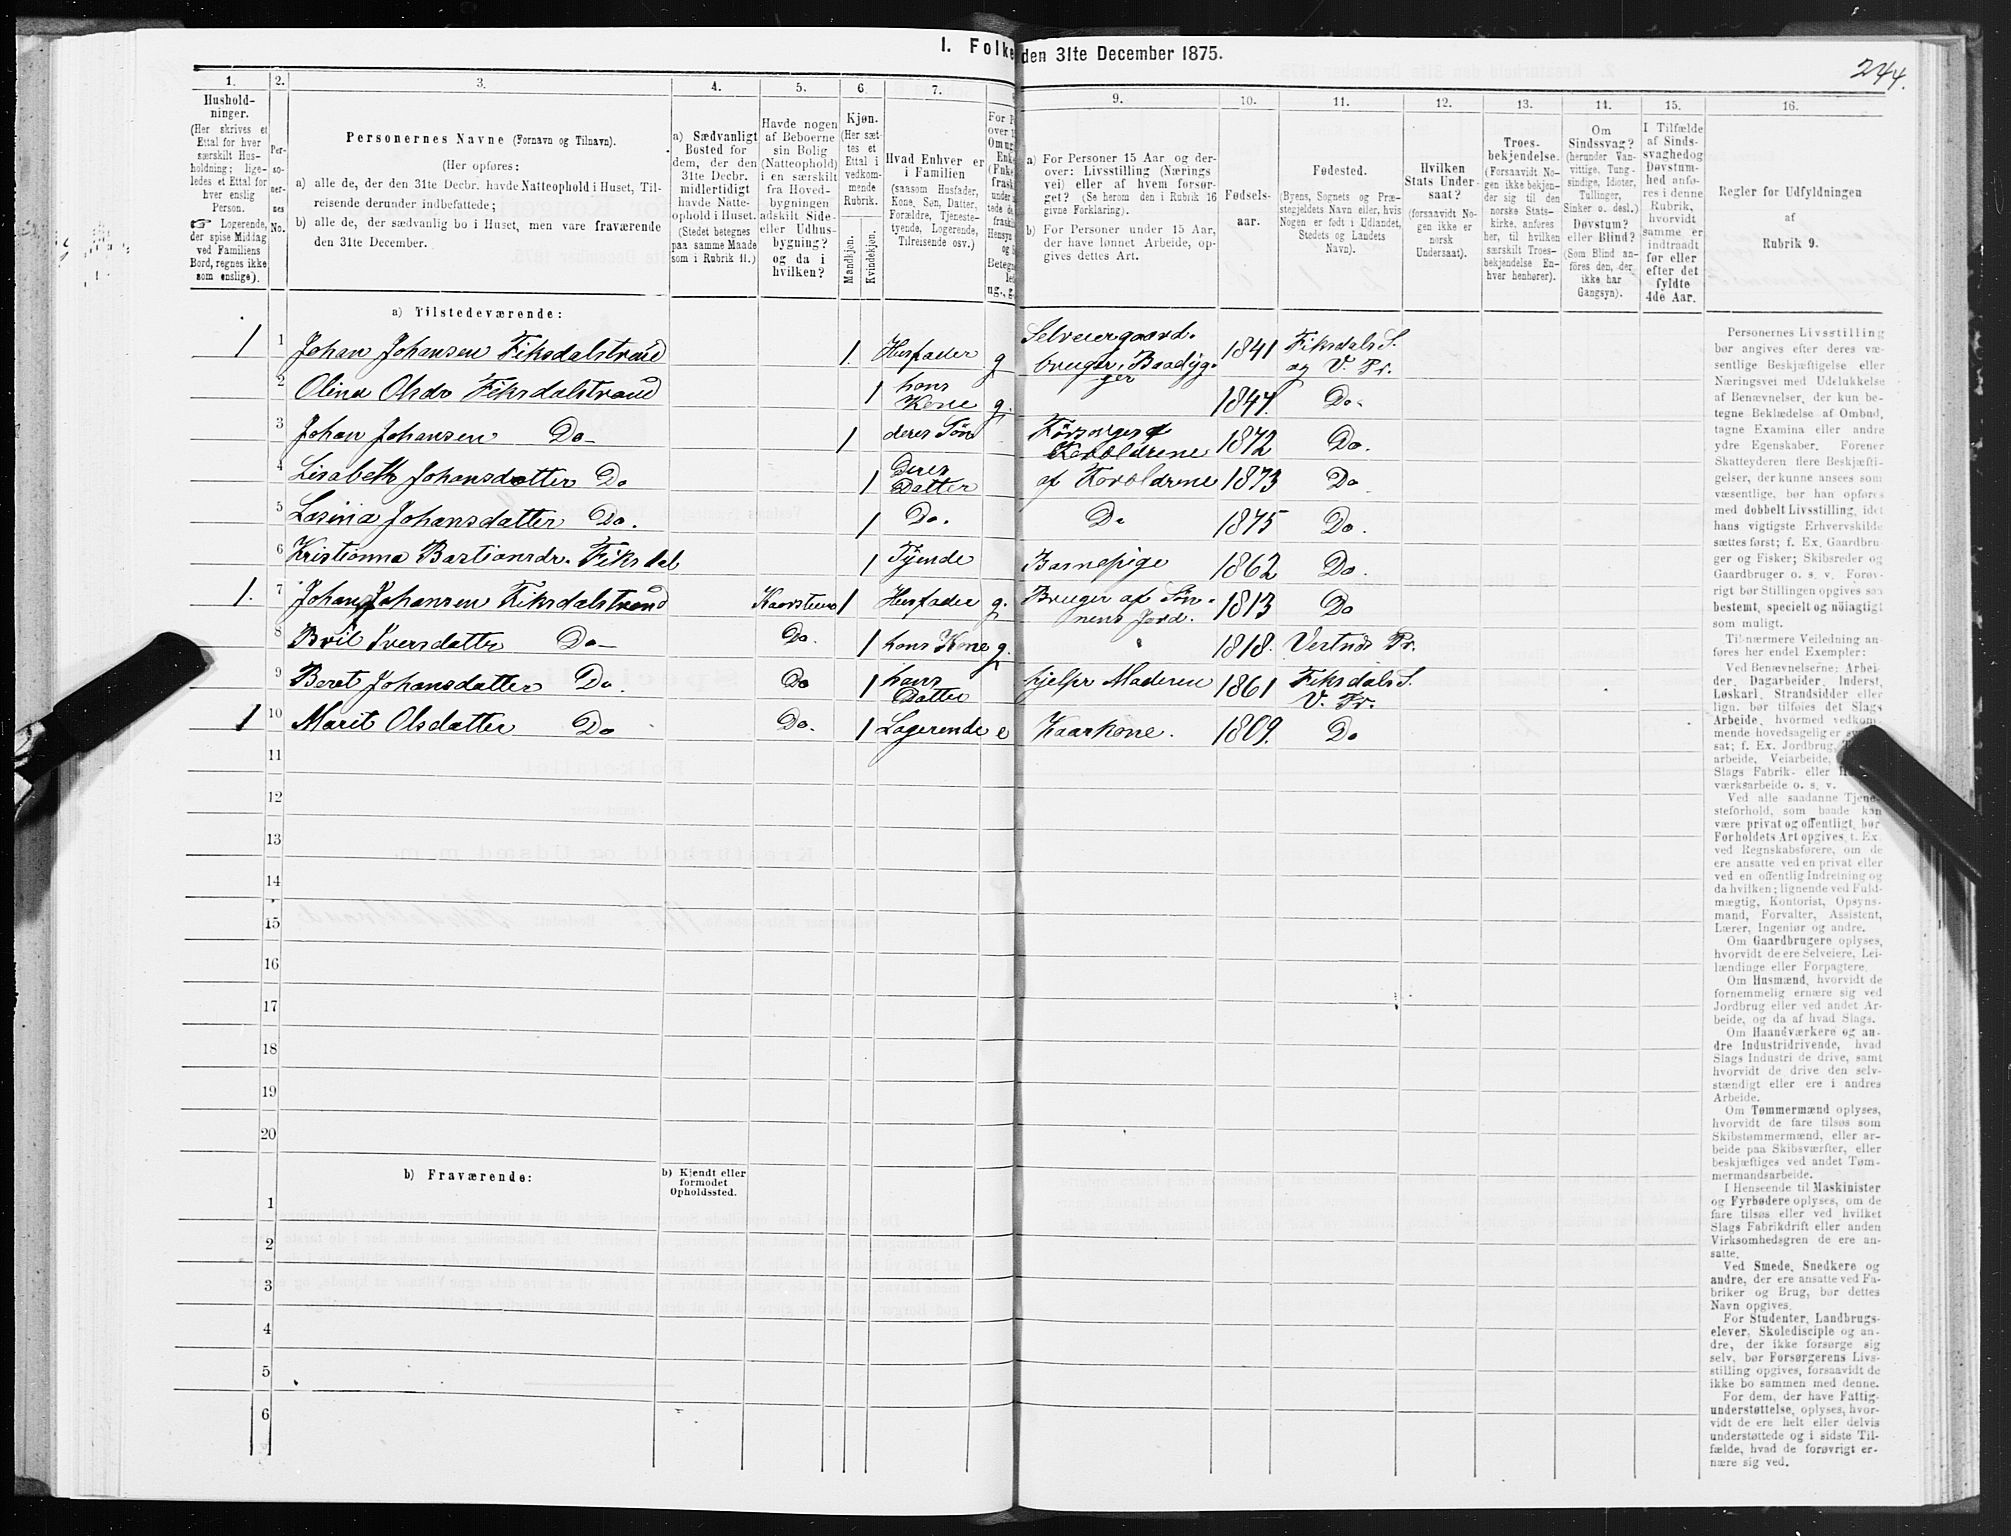 I. Folke
den 31te December 1875.
244.
1.
2.
3.
4.
5.
6.
7.
8
9.
10.
11.
12.
13.
14.
15.
16.
Hushold-
ninger.
(Her skrives et
Ettal for hver
særskilt Hus-
holdning; lige-
ledes et Ettal for
hver enslig
Person.
☞ Logerende,
der spise Middag
ved Familiens
Bord, regnes ikke
som enslige).
Per-
so-
ner-
nes
No.
Personernes Navne (Fornavn og Tilnavn).
(Her opføres:
a) alle de, der den 31te Decbr. havde Natteophold i Huset, Til-
reisende derunder indbefattede;
b) alle de, der sædvanlig bo i Huset, men vare fraværende
den 31te December.
a) Sædvanligt
Bosted for
dem, der den
31te Decbr.
midlertidigt
havde Natte-
ophold i Huset.
(Stedet betegnes
paa samme Maade
som i Rubrik 11.)
Havde nogen
af Beboerne
sin Bolig
(Natteophold)
i en særskilt
fra Hoved-
bygningen
adskilt Side-
eller Udhus-
bygning?
og da i
hvilken?
Kjøn.
(Her sæt-
tes et
Ettal i
vedkom-
mende
Rubrik.
Mandkjøn.
Kvindekjøn.
Hvad Enhver er
i Familien
(saasom Husfader,
Kone, Søn, Datter,
Forældre, Tjeneste-
tyende, Logerende,
Tilreisende osv.)
For P
over 1
Om ug
Enke
(Enke
frask
under i
tede d
frask
Hensyn
og S
Betegn
led
ug., g.
a) For Personer 15 Aar og der-
over: Livsstilling (Nærings
vei) eller af hvem forsør-
get? (Se herom den i Rubrik 16
givne Forklaring).
b) For Personer under 15 Aar,
der have lønnet Arbeide, op-
gives dettes Art.
Fødsels-
aar.
Fødested.
(Byens, Sognets og Præ-
stegjeldets Navn eller, hvis
Nogen er født i Udlandet,
Stedets og Landets
Navn).
Hvilken
Stats Under-
saat?
(forsaavidt No-
gen ikke er
norsk
Undersaat).
Troes-
bekjendelse.
(Forsaavidt No-
gen ikke bekjen-
der sig til den
norske Stats-
kirke, anføres
her, til hvilken
særskilt Troes-
bekjendelse En-
hver henhører).
Om
Sindssvag?
(herunder Van-
vittige, Tung-
sindige, Idioter,
Tullinger,
Sinker o. desl.)
Døvstum?
eller Blind?
(Som Blind an-
føres den, der
ikke har
Gangsyn).
I Tilfælde
af Sinds-
svaghedog
Døvstum-
hed anfø-
res i denne
Rubrik,
hvorvidt
samme er
indtraadt
før eller
efter det
fyldte
4de Aar.
Regler for Udfyldningen
af
Rubrik 9.
a) Tilstedeværende:
1 1 Johan Johansen Fiksdalstrand 1. Husfader g Selveiergaard-
bruger, Baadbyg-
ger 1841 Fiksdals S.
og V. Pr.
2 Olina Olsdr Fiksdalstrand 1 hans
Kone g. 1847. Do.
3 Johan Johansen Do 1 deres Søn Forsørges af
Forældrene 1872 Do.
4 Lisabeth Johansdatter Do 1 Deres
Datter af Forældrene 1873 Do
5 Lasina Johansdatter Do. 1 Do. Do 1875 Do.
6 Kristianna Bastiansdr. Fiksdal 1 Tyende Barnepige 1862 Do.
1. 7 Johan Johansen Fiksdalstrand Kaarstuen 1 Husfader g. Bruger af Søn-
nens Jord. 1813 Do
8 Bril Iversdatter Do Do. 1 hans Kone g. " 1818. Vestnæs Pr.
9 Beret Johansdatter Do. Do 1 hans
Datter hjelper Moderen 1861 Fiksdals S.
V. Pr.
1 10 Marit Olsdatter Do Do. 1 Logerende e Kaarkone. 1809. Do
11
12
13
14
15
16
17
18
19
20
b) Fraværende:
b) Kjendt eller
formodet
Opholdssted.
1
2
3
4
5
6
Personernes Livsstilling
bør angives efter deres væ-
sentlige Beskjæftigelse eller
Næringsvei med Udelukkelse
af Benævnelser, der kun be-
tegne Beklædelse af Ombud,
tagne Examina eller andre
ydre Egenskaber. Forener
Skatteyderen flere Beskjæfti-
gelser, der kunne ansees som
væsentlige, bør han opføres
med dobbelt Livsstilling, idet
hans vigtigste Erhvervskilde
sættes først; f. Ex. Gaardbru-
ger og Fisker; Skibsreder og
Gaardbruger o. s. v. Forøv-
rigt bør Stillingen opgives saa
bestemt, specielt og nøiagtigt
som muligt.
Til nærmere Veiledning an-
føres her endel Exempler:
Ved Benævnelserne: Arbei-
der, Dagarbeider, Inderst,
Løskarl, Strandsidder eller
lign. bør tilføies det Slags
Arbeide, hvormed vedkom-
mende hovedsagelig er
sat; f. Ex. Jordbrug,
arbeide, Veiarbeide,
Slags Fabrik- eller
værksarbeide o. s. v.
Ved alle saadanne Tjene-
steforhold, som baade kan
være privat og offentligt, bør
Forholdets Art opgives, t. Ex.
ved Regnskabsførere, om de
ere ansatte ved en privat eller
ved en offentlig Indretning og
da hvilken; lignende ved Fuld-
mægtig, Kontorist, Opsyns-
mand, Forvalter, Assistent,
Lærer, Ingeniør og andre.
Om Gaardbrugere oplyses,
hvorvidt de ere Selveiere, Lei-
lændinge eller Forpagtere.
Om Husmænd, hvorvidt de
fornemmelig ernære sig ved
Jordbrug eller ved andet Ar-
beide, og da af hvad Slags.
Om Haandværkere og an-
dre Industridrivende, hvad
Slags Industri de drive, samt
hvorvidt de drive den selv-
stændigt eller ere i andres
Arbeide.
Om Tømmermænd oplyses,
hvorvidt de fare tilsøs som
Skibstømmermænd, eller ar-
beide paa Skibsværfter, eller
beskjæftiges ved andet Tøm-
mermandsarbeide.
I Henseende til Maskinister
og Fyrbødere oplyses, om de
fare tilsøs eller ved hvilket
Slags Fabrikdrift eller anden
Virksomhedsgren de ere an-
satte.
Ved Smede, Snedkere og
andre, der ere ansatte ved Fa-
briker og Brug, bør dettes
Navn opgives.
For Studenter, Landbrugs-
elever, Skoledisciple og an-
dre, der ikke forsørge sig
selv, bør Forsørgerens Livs-
stilling opgives, forsaavidt de
ikke bo sammen med denne.
For dem, der have Fattig-
understøttelse, oplyses, hvor-
vidt de ere helt eller delvis
understøttede og i sidste Til-
fælde, hvad de forøvrigt er-
nære sig ved.